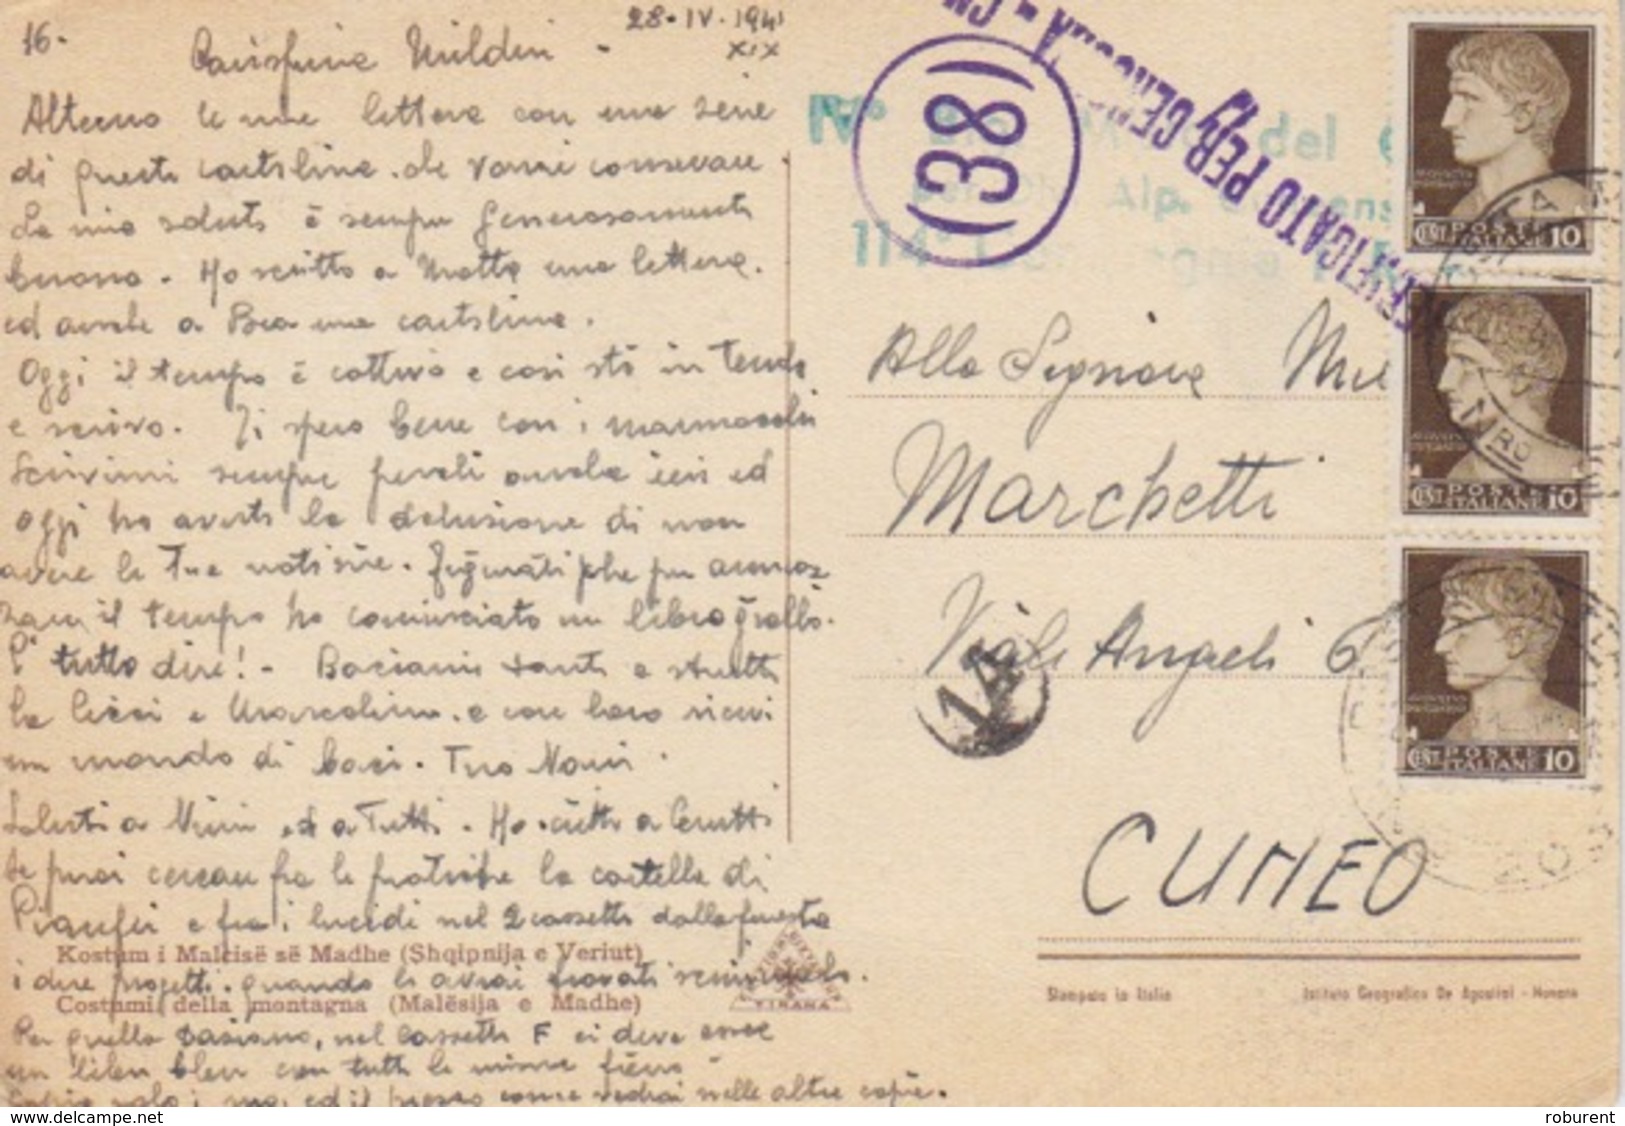 16.
28·IV·1941
XIX
Carissima Mildin -
Alterno le mie lettere con una serie
di queste cartoline che vorrei conservare
La mia salute è sempre generosamente
buona. Ho scritto a una lettera.
ed anche a una cartolina.
Oggi il tempo è cattivo e così stò in tenda
e scrivo. Ti spero bene con i marmocchi
Scrivimi sempre perché anche ieri ed
oggi ho avuto la delusione di non
avere le Tue notizie. Figurati che per ammaz
zare il tempo ho cominciato un libro giallo.
È tutto dire! - Baciami tanto e stretti
la e Marcolino e con loro ricevi
un mondo di baci. Tuo
Saluti a Nini ed a Tutti. Ho scritto a Cerutti
se puoi cercare fra le pratiche la cartella di
e fra i lucidi nel 2 cassetto dalla finestra
i due progetti. quando li avrai trovati scrivimelo.
Per quello Dasiano, nel cassetto F ci deve essere
un con tutte le misure
solo i ed il prezzo come vedrai nelle altre copie.
Kostum i Malcisë së Madhe (Shqipnija e Veriut)
Costumi della montagna (Malësija e Madhe)
TIRANA
VERIFICATO PER CENSURA
(38)
IV° del
Alp.
114°
Alla Signora
Marchetti
Viale Angeli 6
14
CUNEO
POSTE ITALIANE
CENT 10
POSTE ITALIANE
CENT 10
POSTE ITALIANE
CENT 10
Stampato in Italia
Istituto Geografico De Agostini - Novara
delcampe.net
roburent